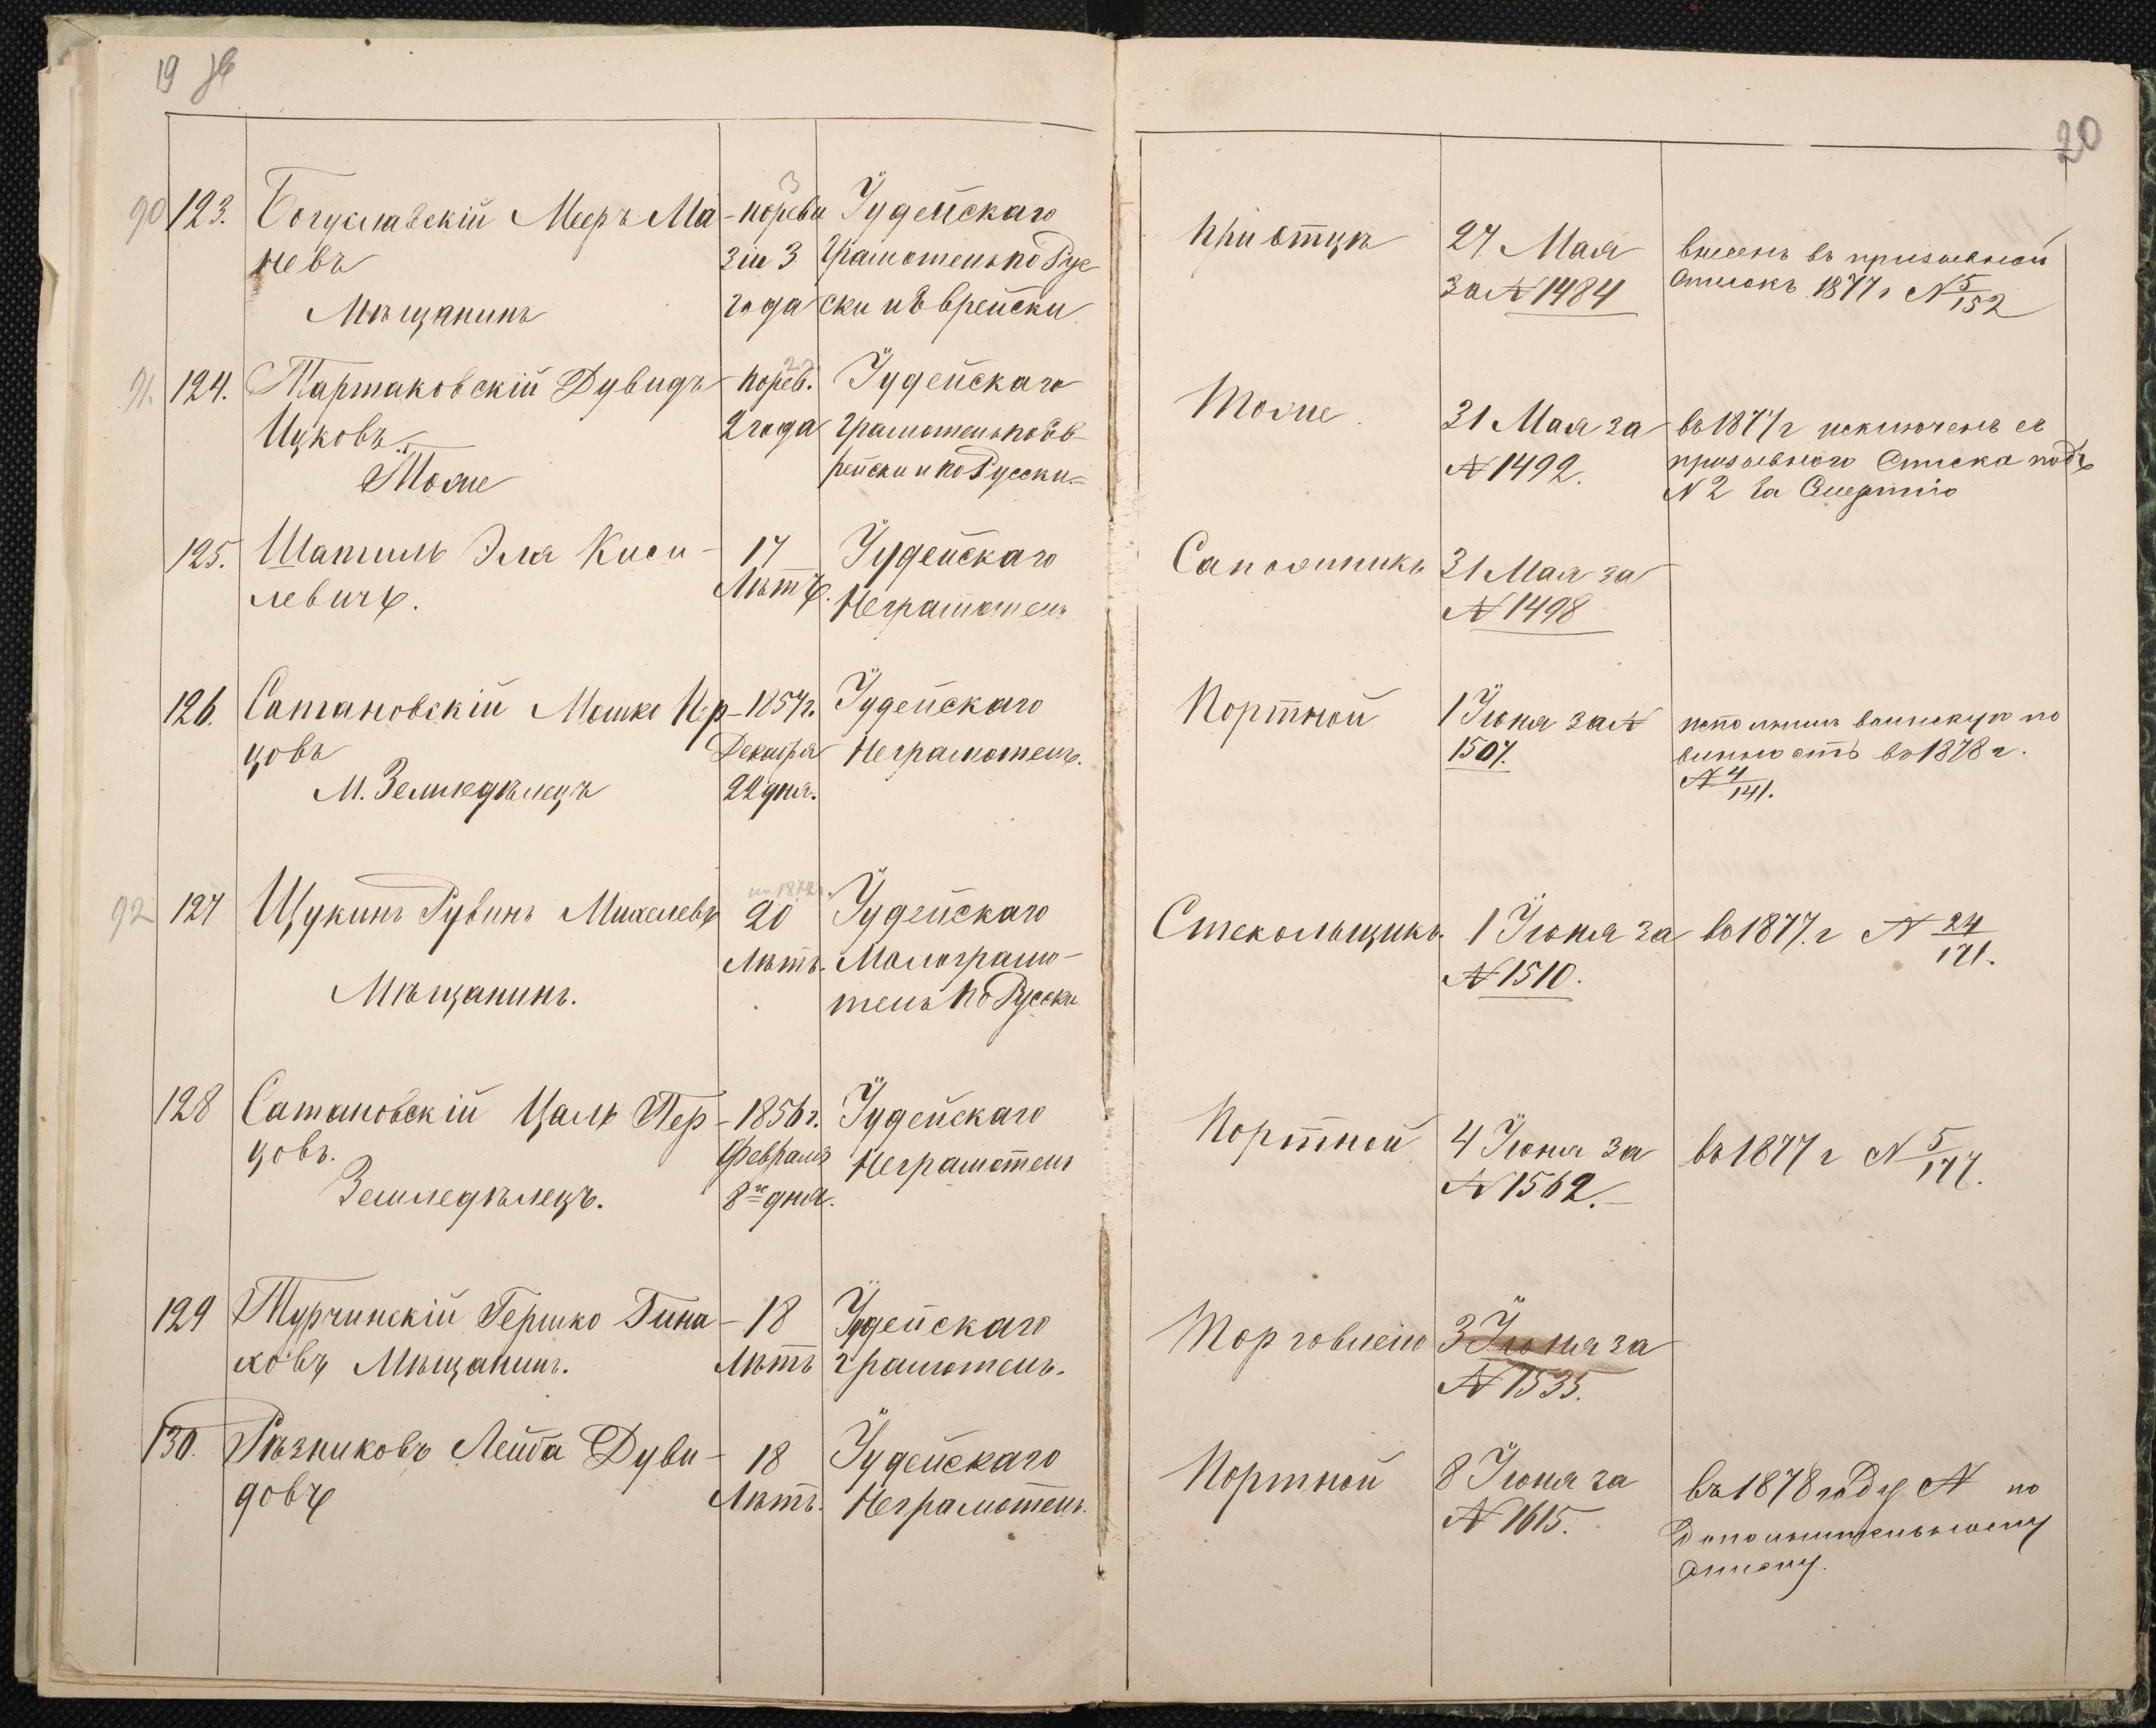 19 об
20
90 123. Богуславскій Мееръ Ма-
невъ
Мѣщанинъ
3
по реви
зіи 3
года
Іудейскаго
Грамотенъ по Рус
ски и Еврейски
при отцѣ
27 Мая
за № 1484
внесенъ въ призывной
списокъ 1877 г № 5/152
91. 124. Тартаковскій Дувидъ
Ицковъ.
Тоже
по рев.
2 года
Іудейскаго
грамотенъ по Ев-
рейски и по Русски.
Тоже
31 Мая за
№ 1492.
въ 1877 г исключенъ съ
призывного Списка подъ
№ 2 за Смертію
125. Шатиль Эля Киси-
левичъ.
17
Лѣтъ.
Іудейскаго
Неграмотенъ
Сапожникъ
31 Мая за
№ 1498
126. Сатановскій Мошко
цовъ
М. Земледѣлецъ
1857 г.
Декабря
22 дня.
Іудейскаго
Неграмотенъ.
Портной
1 Іюня за №
1507.
исполнилъ воинскую по
винность въ 1878 г.
№ 4/141.
92 127 Щукинъ Рувинъ Михелевъ
Мѣщанинъ.
по 1872 г.
20
Лѣтъ.
Іудейскаго
Малограмо-
тенъ по Русски
Стекольщикъ.
1 Іюня за
№ 1510.
въ 1877. г № 24/171.
128 Сатановскій Цаль Пер-
цовъ.
Земледѣлецъ.
1856 г.
Февраля
8го дня.
Іудейскаго
Неграмотенъ
Портной
4 Іюня за
№ 1562.
въ 1877 г № 5/177.
129 Турчинскій Гершко Гина-
ховъ Мѣщанинъ.
18
Лѣтъ
Іудейскаго
грамотенъ.
Торговлею
3 Іюня за
№ 1535.
130. Рѣзниковъ Лейба Дуви-
довъ
18
Лѣтъ.
Іудейскаго
Неграмотенъ.
Портной
8 Іюня за
№ 1615.
въ 1878 году № по
Дополнительному
списку.